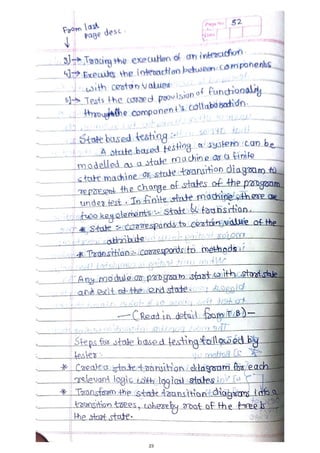 Page No. 52
Date
From last
page desc.
3) → Tracing the execution of an interaction
4) → Executes the interaction between components
with certain values
5) → Tests the correct provision of functionality
through the component's collaboration.
State based testing :-
A state based testing a system can be
modelled as a state machine or a finite
state machine or state transition diagram to
represent the change of states of the program
under test. In finite state machine there are
two key elements :- State & transition.
* State :- corresponds to certain value of the
attribute
* Transition :- corresponds to methods
Any module or program start with start state
and exit at the end state.
— (Read in detail from T.B) —
Steps for state based testing followed by
tester :-
* Create a state transition diagram for each
relevant logic with logical states
* Transform the state transition diagrams into a
transition trees, whereby root of the tree is
the start state.
23